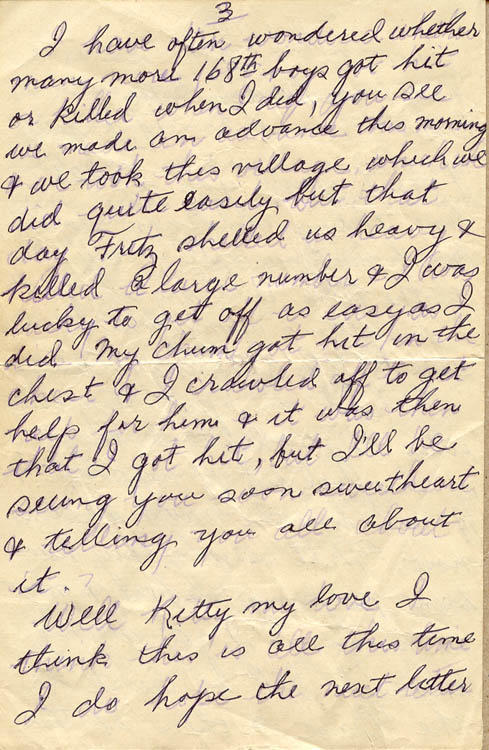 3
I have often wondered whether
many more 168th boys got hit
or killed when I did, you see
we made an advance this morning
& we took this village which we
did quite easily but that
day Fritz shelled us heavy &
killed a large number & I was
lucky to get off as easy as I
did My chum got hit in the
chest & I crawled off to get
help for him & it was then
that I got hit, but I'll be
seeing you soon sweetheart
& telling you all about
it.
Well Kitty my love I
think this is all this time
I do hope the next letter